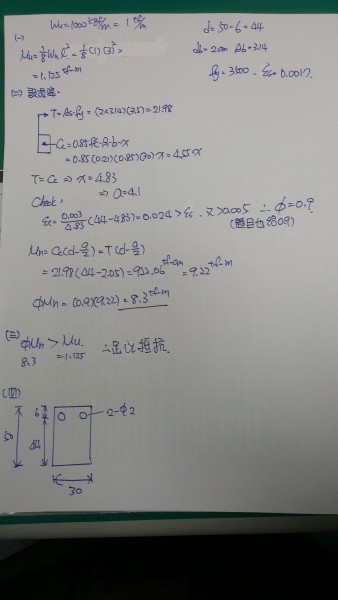 Wu = 1000 kgf/m = 1 tf/m
d = 50-6 = 44
(一)
Mu = 1/8 Wu l² = 1/8 (1) (3)² =
db = 2cm Ab = 3.14
= 1.125 tf-m
fy = 3500 - εs = 0.0017.
(二)
T = As·fy = (2×3.14)(3.5) = 21.98
Cc = 0.85 fc'·β·b·x
= 0.85 (0.21)(0.85)(30)·x = 4.55·x
T = Cc ⇒ x = 4.83
⇒ a = 4.1
Check:
εt = 0.003/4.83 (44-4.83) = 0.024 > εs 又 > 0.005 ∴ φ = 0.9
(題目也給0.9)
Mn = Cc(d-a/2) = T(d-a/2)
= 21.98 (44-2.05) = 922.06 tf-cm = 9.22 tf-m
φMn = (0.9)(9.22) = 8.3 tf-m
(三)
φMn > Mu ∴足以抵抗.
8.3 = 1.125
(四)
6
2-φ2
50
44
30